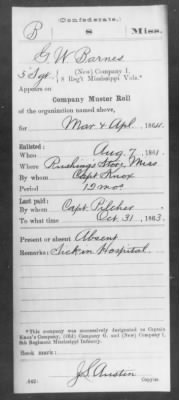 (Confederate.)
B 8 Miss.
G W Barnes
5 Sgt., (New) Company I,
8 Reg't Mississippi Vols.*
Appears on
Company Muster Roll
of the organization named above,
for Mar & Apl, 1864.
Enlisted:
When Aug 7, 1861.
Where Rushing's Store Miss
By whom Capt Knox
Period 12 mos
Last paid:
By whom Capt. Pilcher
To what time Oct. 31, 1863.
Present or absent Absent
Remarks: Sick in Hospital.
*This company was successively designated as Captain
Knox's Company, (Old) Company G, and (New) Company I,
8th Regiment Mississippi Infantry.
Book mark:
(642) J S Austin
Copyist.